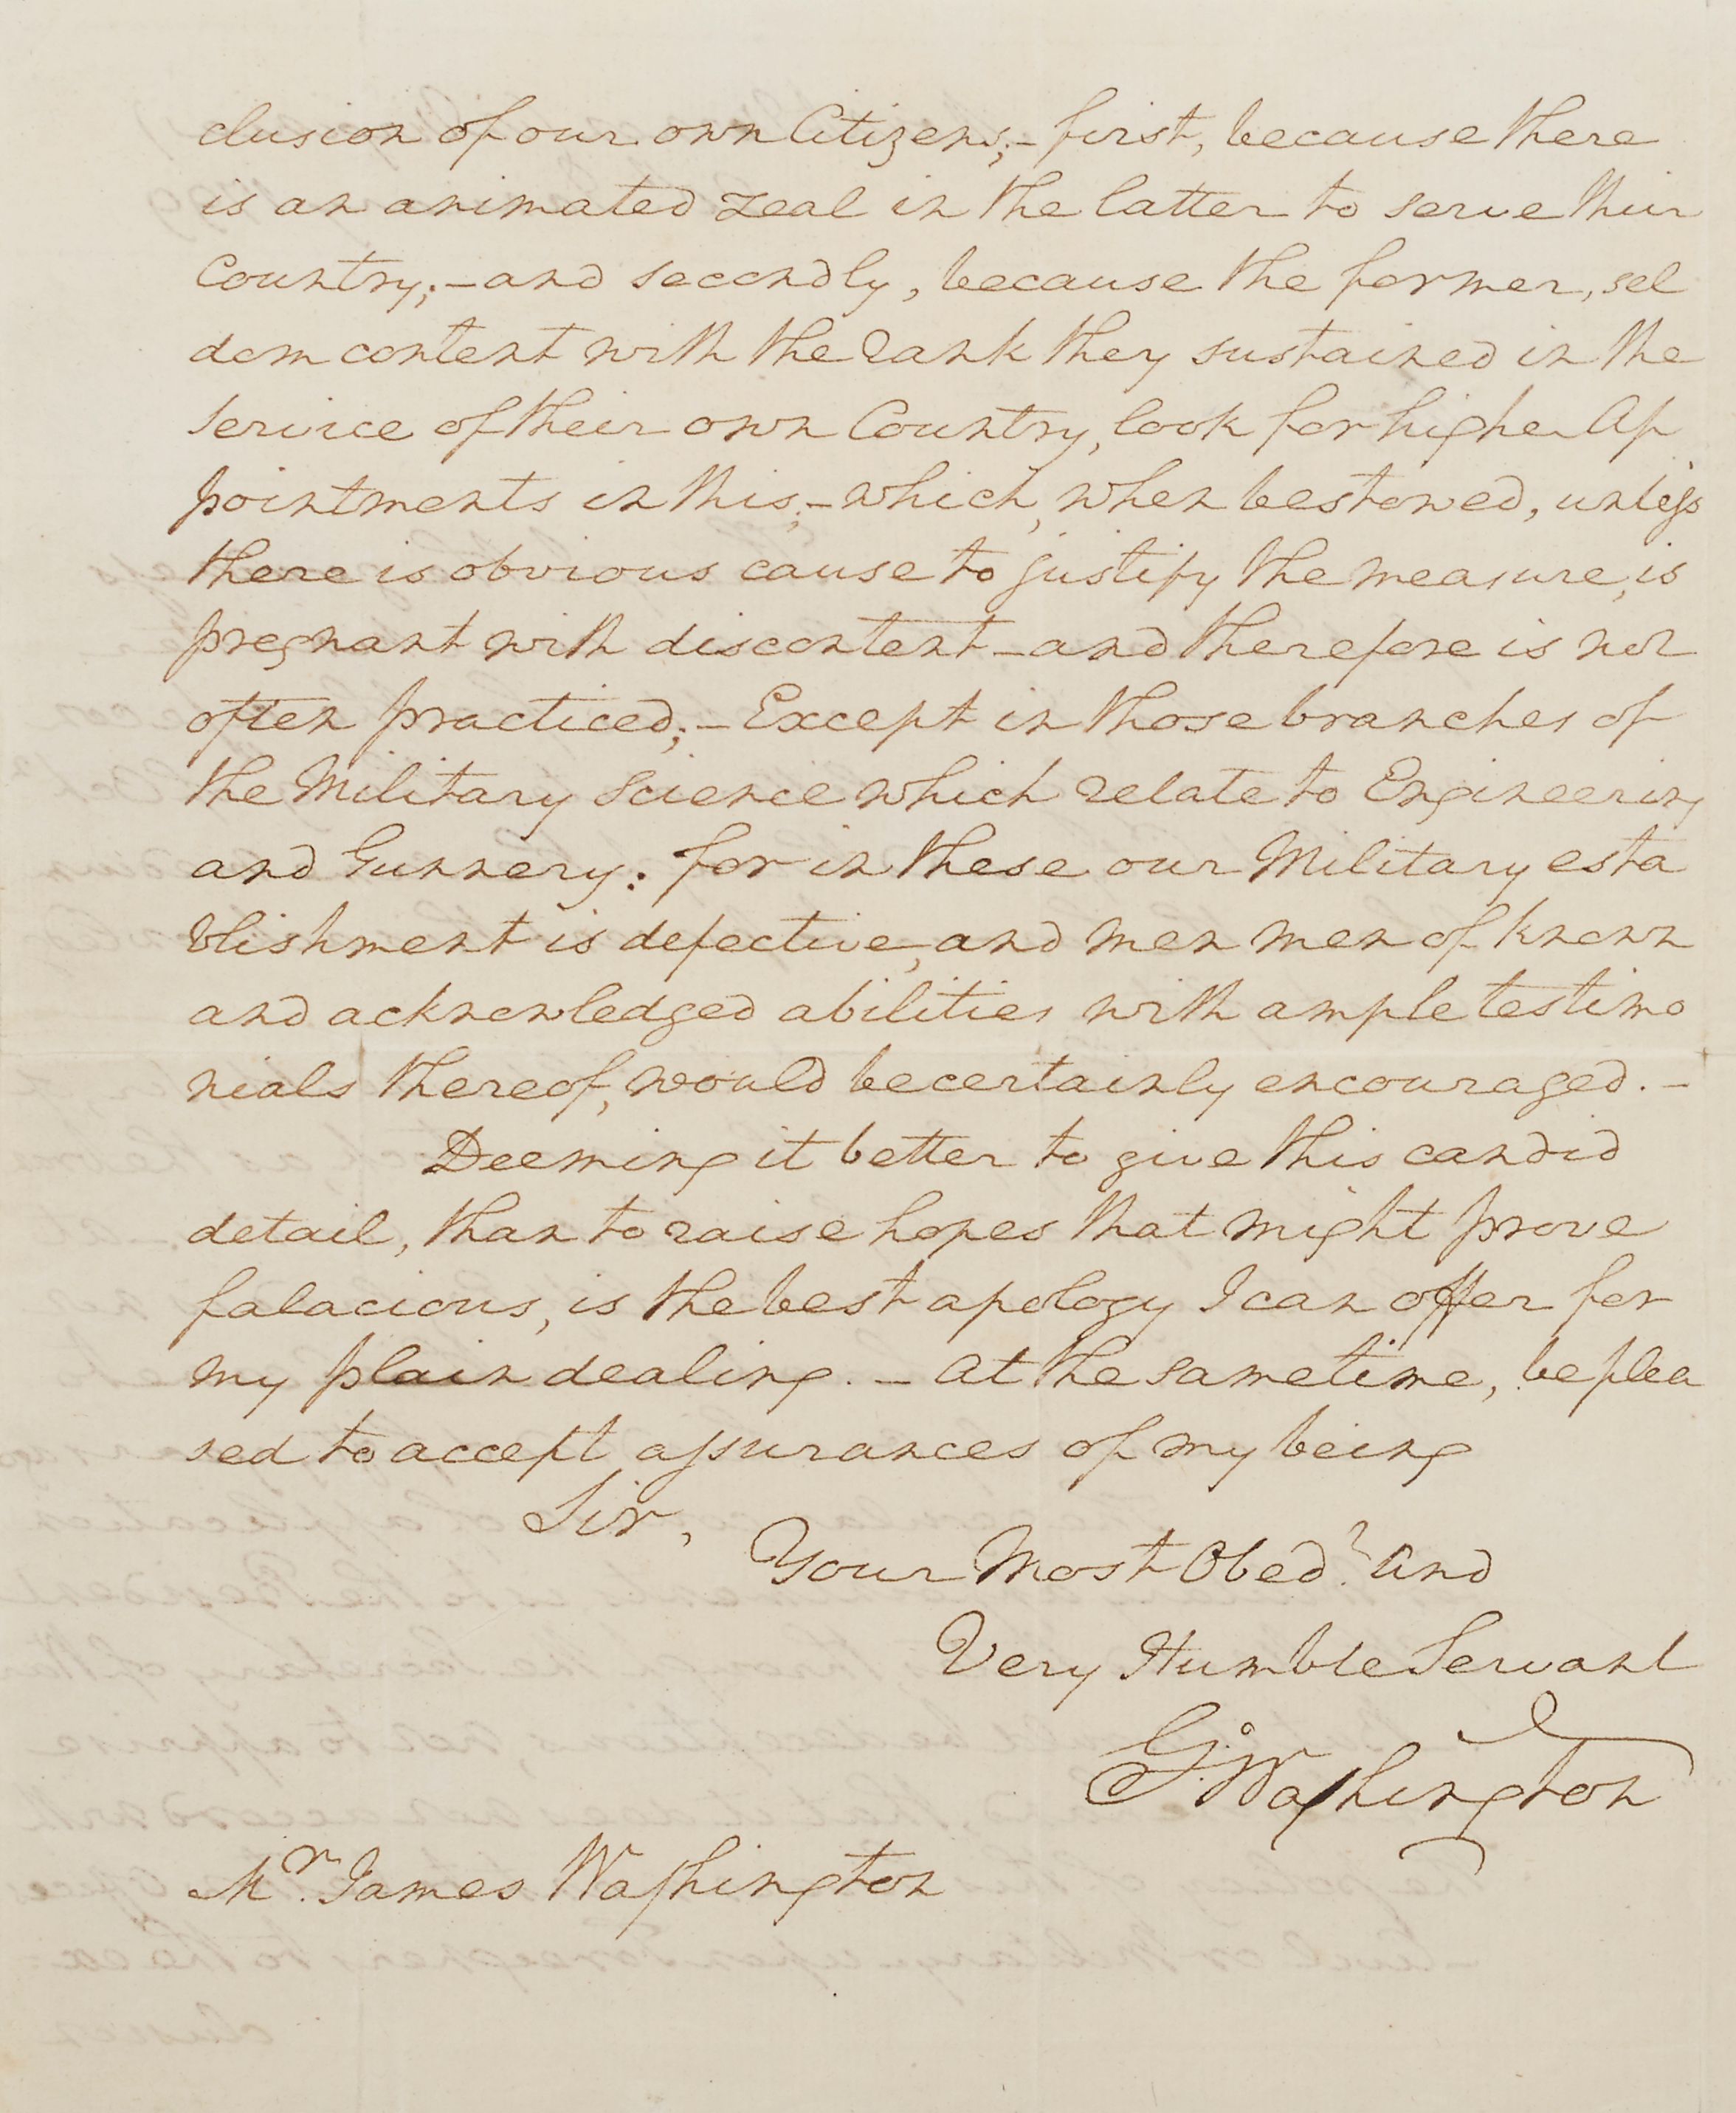 clusion of our own Citizens;– first, because there
is an animated zeal in the latter to serve their
Country;– and secondly, because the former, sel
dom content with the rank they sustained in the
service of their own Country, look for higher Ap
pointments in this;– which, when bestowed, unless
there is obvious cause to justify the measure, is
pregnant with discontent – and therefore is not
often practiced;– Except in those branches of
the Military Science which relate to Engineering
and Gunnery: for in these our Military esta
blishment is defective, and men men of known
and acknowledged abilities with ample testimo
nials thereof, would be certainly encouraged.–
Deeming it better to give this candid
detail, than to raise hopes that might prove
falacious, is the best apology I can offer for
my plain dealing.– At the same time, be plea
sed to accept assurances of my being
Sir,
Your Most Obedt. and
Very Humble Servant
Go. Washington
Mr. James Washington